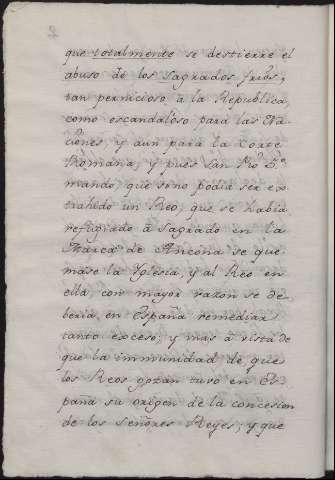 que totalmente se destierre el
abuso de los sagrados frios,
tan pernicioso à la Republica,
como escandaloso para las Na-
ciones, y aun para la Corte
Romana; y pues San Pio 5.º
mandò, que si no podia ser ex-
trahido un Reo, que se habia
refugiado à Sagrado en la
Marca de Ancona se que-
mase la Yglesia, y al Reo en
ella, con mayor razon se de-
beria en España remediar
tanto exceso, y mas à vista de
que la immunidad de que
los Reos gozan tuvo en Es-
paña su origen de la concesion
de los señores Reyes; y que